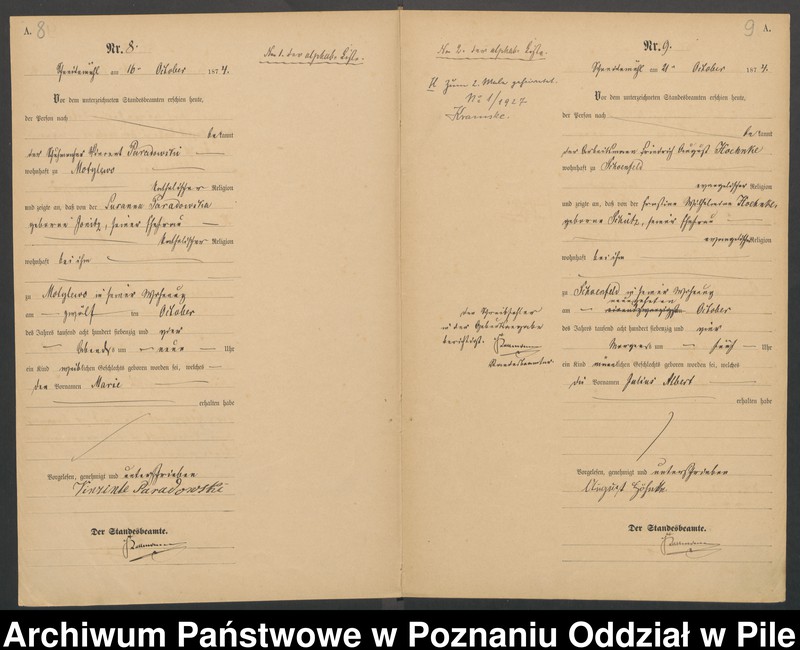 A. 8
Nr. 8.
Schneidemühl am 16ten October 1874.
Vor dem unterzeichneten Standesbeamten erschien heute,
der Person nach
bekannt
der Schuhmacher Vincent Paradowski
wohnhaft zu Motylewo
katholischer Religion
und zeigte an, daß von der Susanna Paradowska
geborene Jonitz, seiner Ehefrau
katholischer Religion
wohnhaft bei ihm
zu Motylewo in seiner Wohnung
am zwölf ten October
des Jahres tausend acht hundert siebenzig und vier
Abends um neun Uhr
ein Kind weiblichen Geschlechts geboren worden sei, welches
den Vornamen Marie
erhalten habe
Vorgelesen, genehmigt und unterschrieben
Vinzente Paradowski
Der Standesbeamte.
No 1. der alphab. Liste.
No 2. der alphab. Liste.
Zum 2. Male geheiratet.
No 1/1927
der Schreibfehler
in der Geburtsangabe
berichtigt.
Standesbeamter.
9 A.
Nr. 9.
Schneidemühl am 21ten October 1874.
Vor dem unterzeichneten Standesbeamten erschien heute,
der Person nach
bekannt
der Arbeitsmann Friedrich August Hoehnke
wohnhaft zu Schoenfeld
evangelischer Religion
und zeigte an, daß von der Ernstine Wilhelmine Hoehnke,
geborene Schütz, seiner Ehefrau
evangelischer Religion
wohnhaft bei ihm
zu Schoenfeld in seiner Wohnung
neunzehnten
am einundzwanzigsten October
des Jahres tausend acht hundert siebenzig und vier
Morgens um früh Uhr
ein Kind männlichen Geschlechts geboren worden sei, welches
die Vornamen Julius Albert
erhalten habe
Vorgelesen, genehmigt und unterschrieben
August Höhnke
Der Standesbeamte.
Archiwum Państwowe w Poznaniu Oddział w Pile